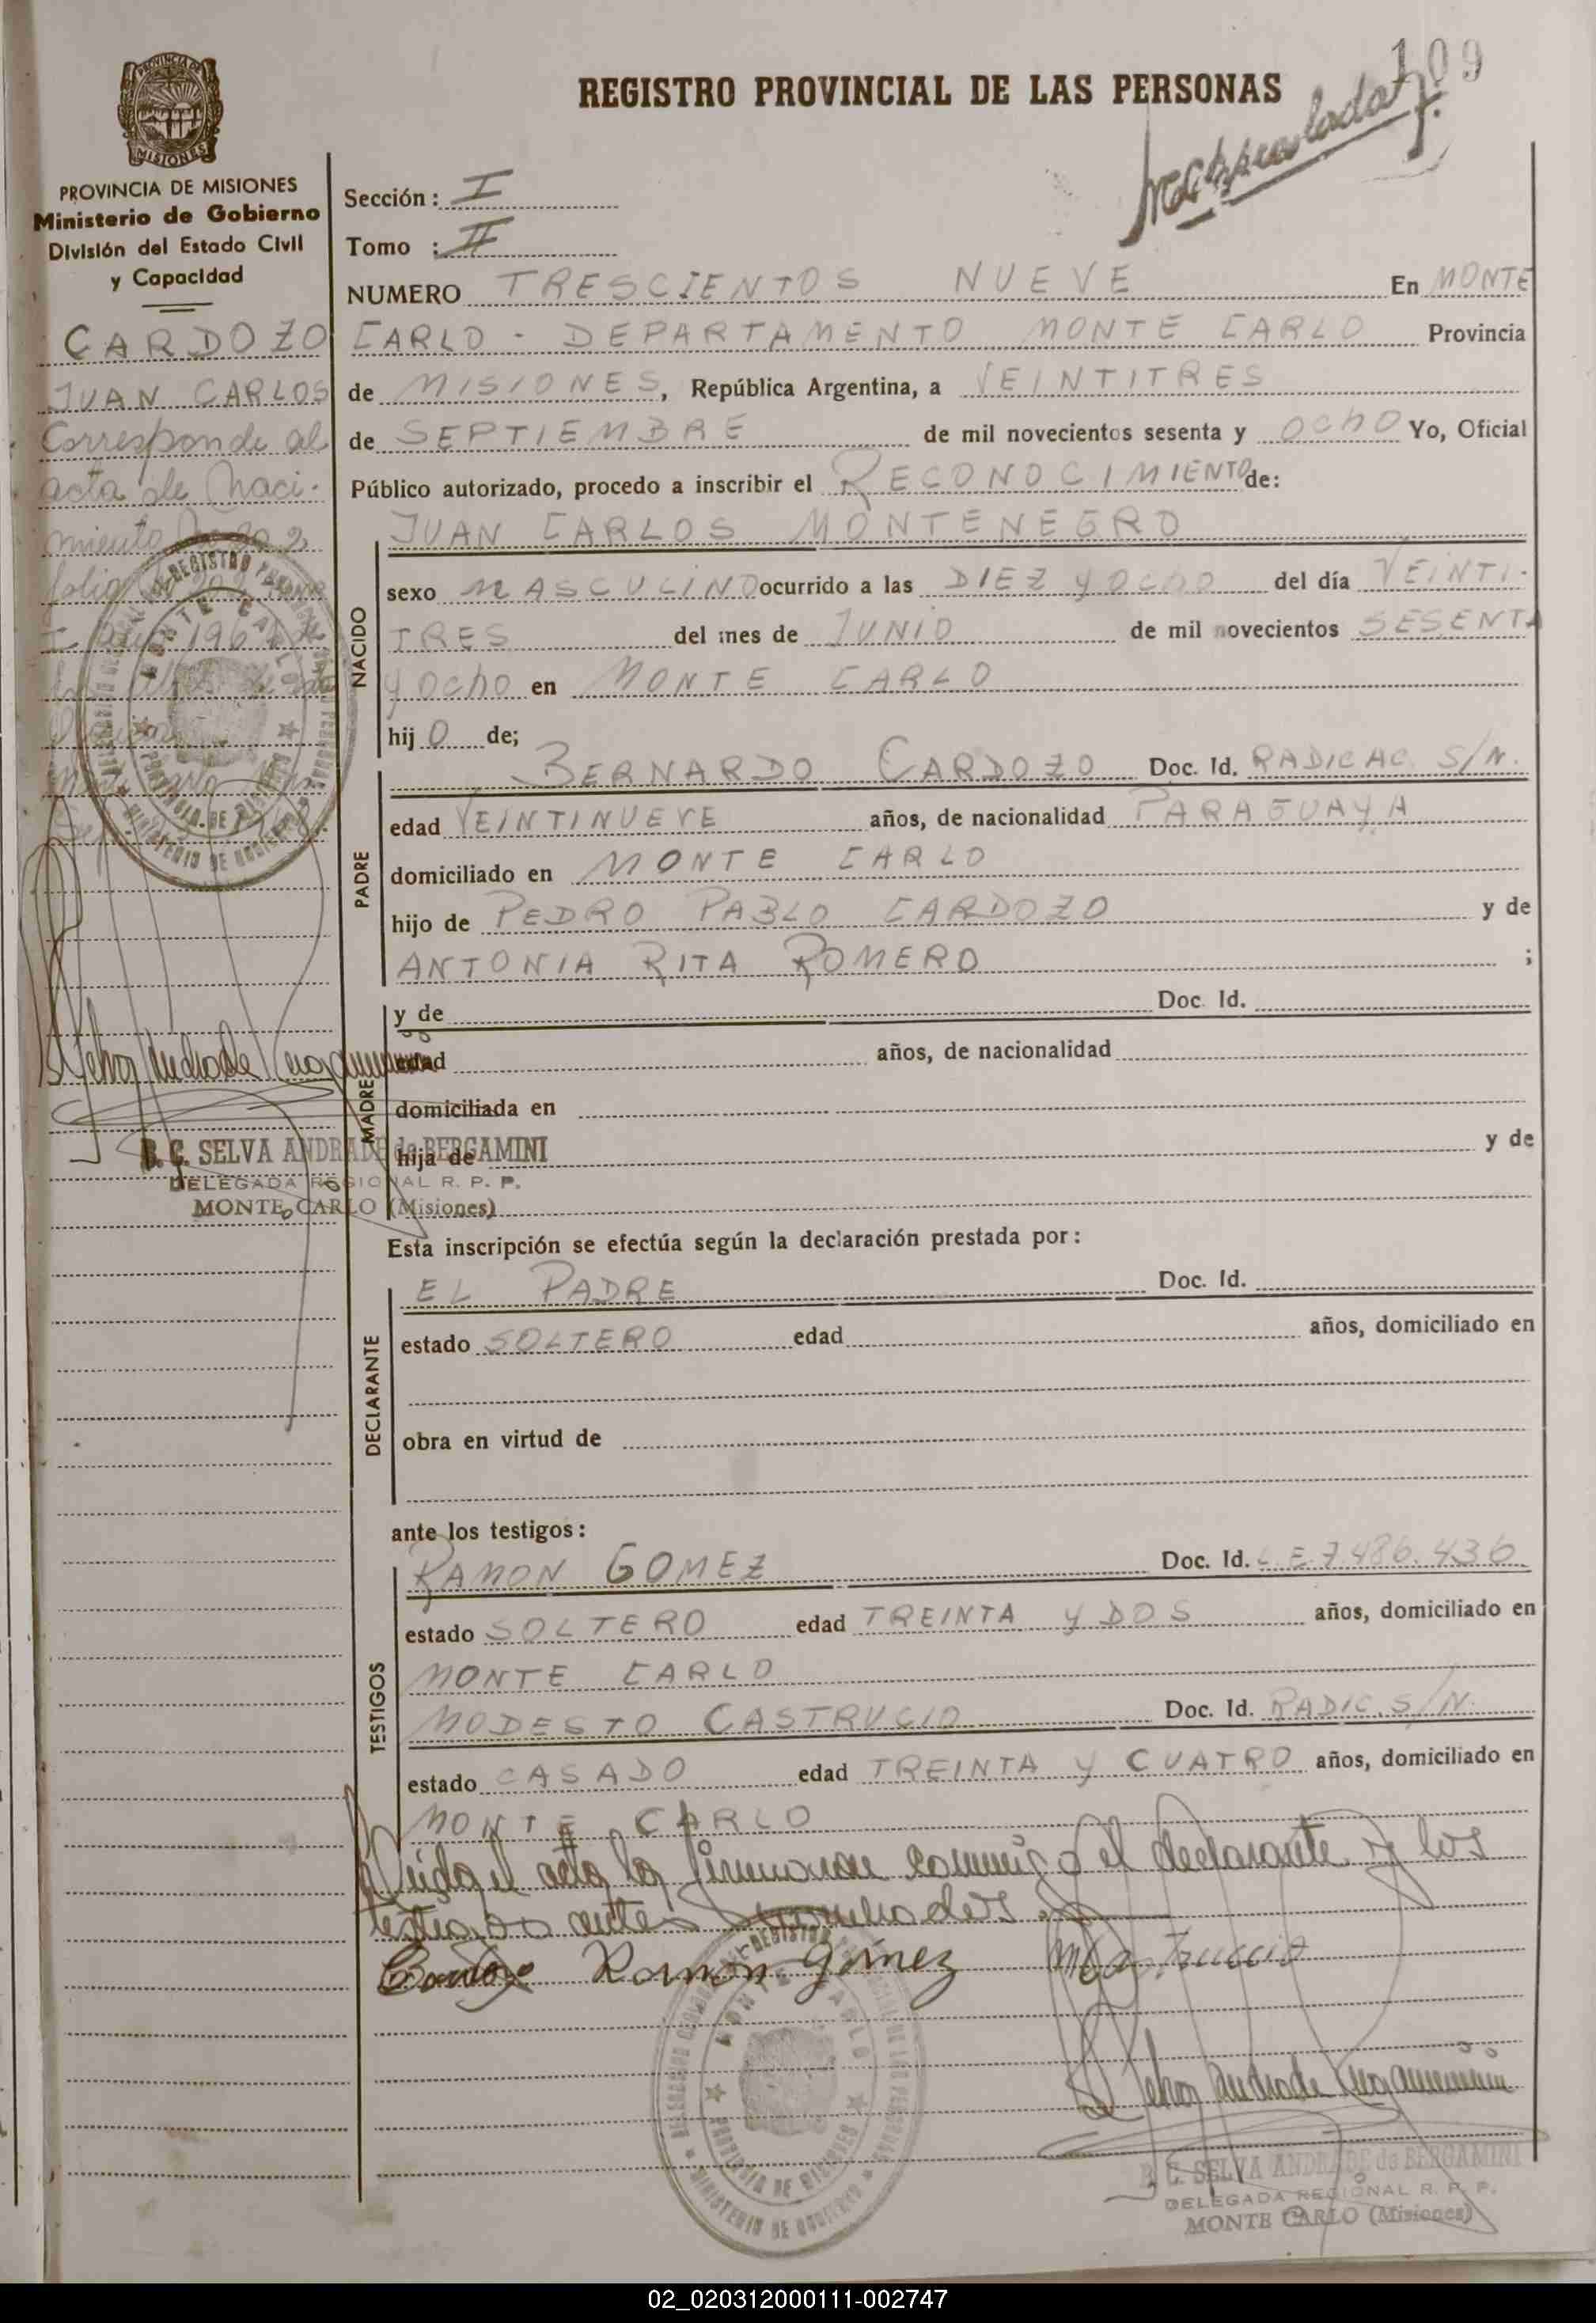 109
REGISTRO PROVINCIAL DE LAS PERSONAS
PROVINCIA DE MISIONES
MISIONES
PROVINCIA DE MISIONES
Ministerio de Gobierno
División del Estado Civil
y Capacidad
Sección: I
Tomo : II
NUMERO TRESCIENTOS NUEVE En MONTE
CARLO - DEPARTAMENTO MONTE CARLO Provincia
de MISIONES, República Argentina, a VEINTITRES
de SEPTIEMBRE de mil novecientos sesenta y OCHO Yo, Oficial
Público autorizado, procedo a inscribir el RECONOCIMIENTO de:
JUAN CARLOS MONTENEGRO
CARDOZO
JUAN CARLOS
Corresponde al
acta de Naci-
miento
folio
NACIDO
sexo MASCULINO ocurrido a las DIEZ y OCHO del día VEINTI-
TRES del mes de JUNIO de mil novecientos SESENTA
y OCHO en MONTE CARLO
hij O de;
PADRE
BERNARDO CARDOZO Doc. Id. RADICAC S/N.
edad VEINTINUEVE años, de nacionalidad PARAGUAYA
domiciliado en MONTE CARLO
hijo de PEDRO PABLO CARDOZO y de
ANTONIA RITA ROMERO ;
MADRE
y de Doc. Id.
edad años, de nacionalidad
domiciliada en
hija de y de
B. C. SELVA ANDRADE de BERGAMINI
DELEGADA REGIONAL R. P. P.
MONTE CARLO (Misiones)
Esta inscripción se efectúa según la declaración prestada por:
DECLARANTE
EL PADRE Doc. Id.
estado SOLTERO edad años, domiciliado en
obra en virtud de
ante los testigos:
TESTIGOS
RAMON GOMEZ Doc. Id. L E 7.486.436
estado SOLTERO edad TREINTA y DOS años, domiciliado en
MONTE CARLO
MODESTO CASTRUCIO Doc. Id. RADIC. S/N.
estado CASADO edad TREINTA y CUATRO años, domiciliado en
MONTE CARLO
Leida el acta la firmaron conmigo el declarante y los
testigos antes nombrados.
Cardozo Ramon Gómez M Castruccio
B. C. SELVA ANDRADE de BERGAMINI
DELEGADA REGIONAL R. P. P.
MONTE CARLO (Misiones)
02_020312000111-002747